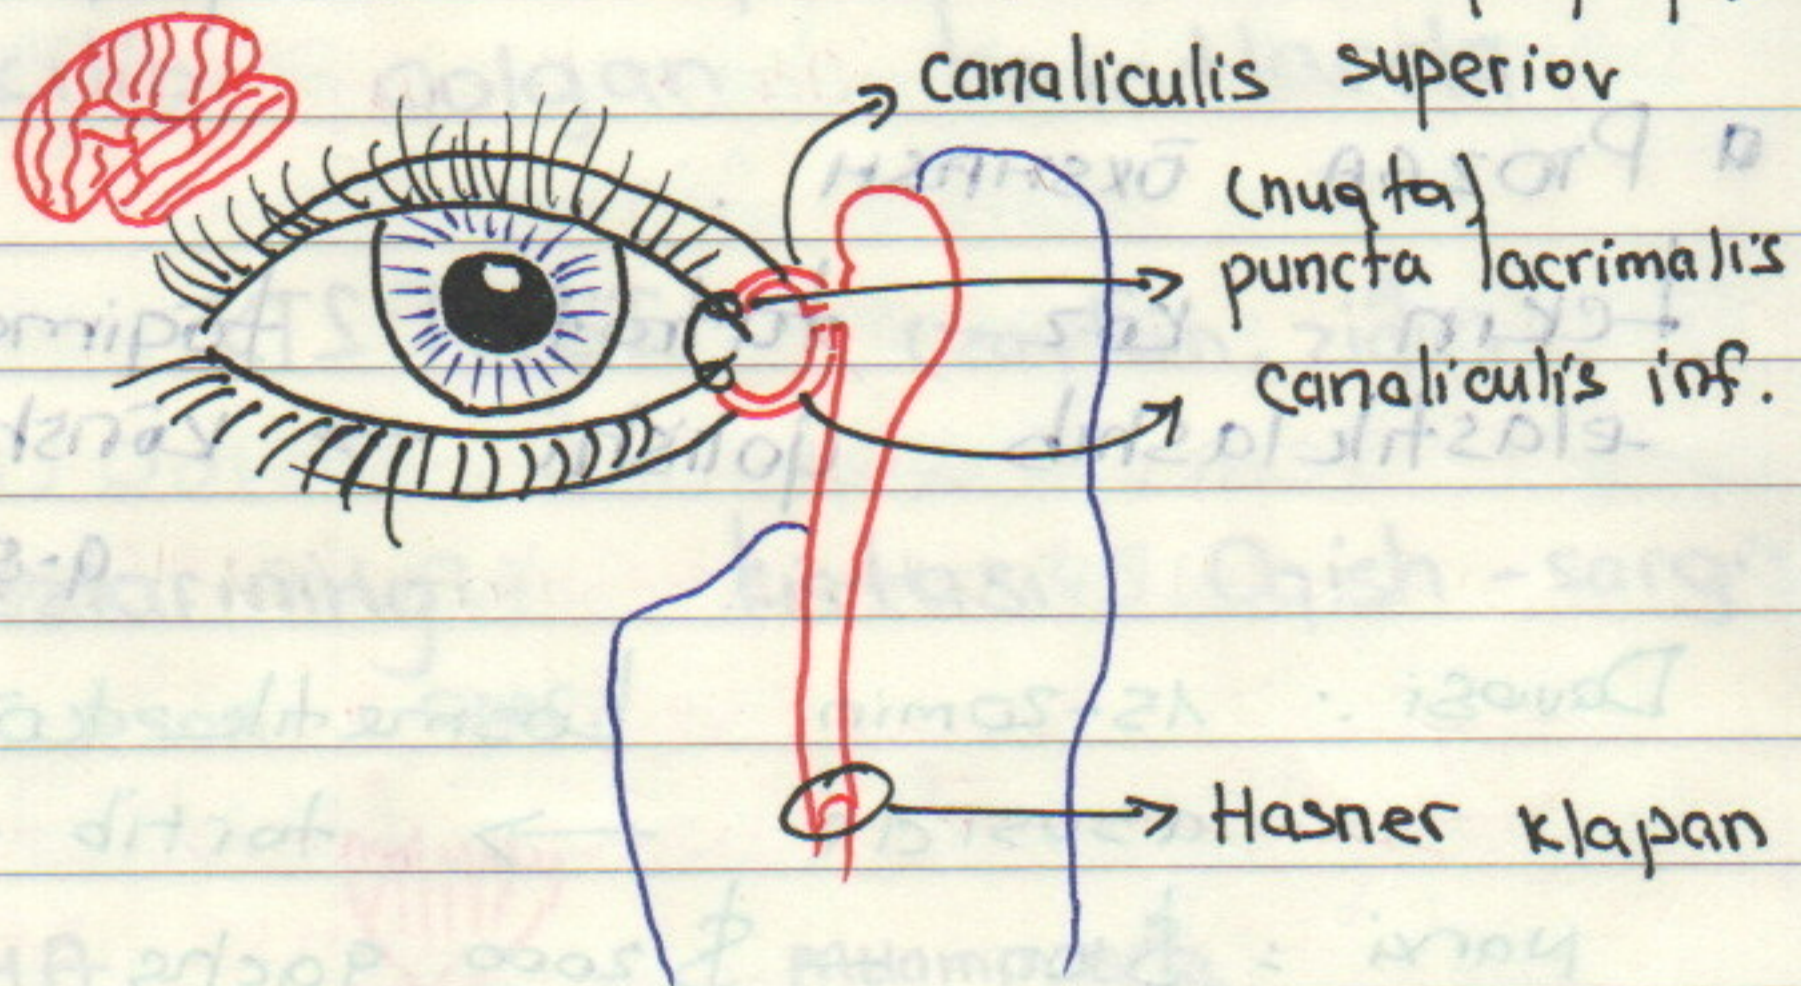 canaliculis superior
(nuqta)
puncta lacrimalis
canaliculis inf.
Hasner klapan